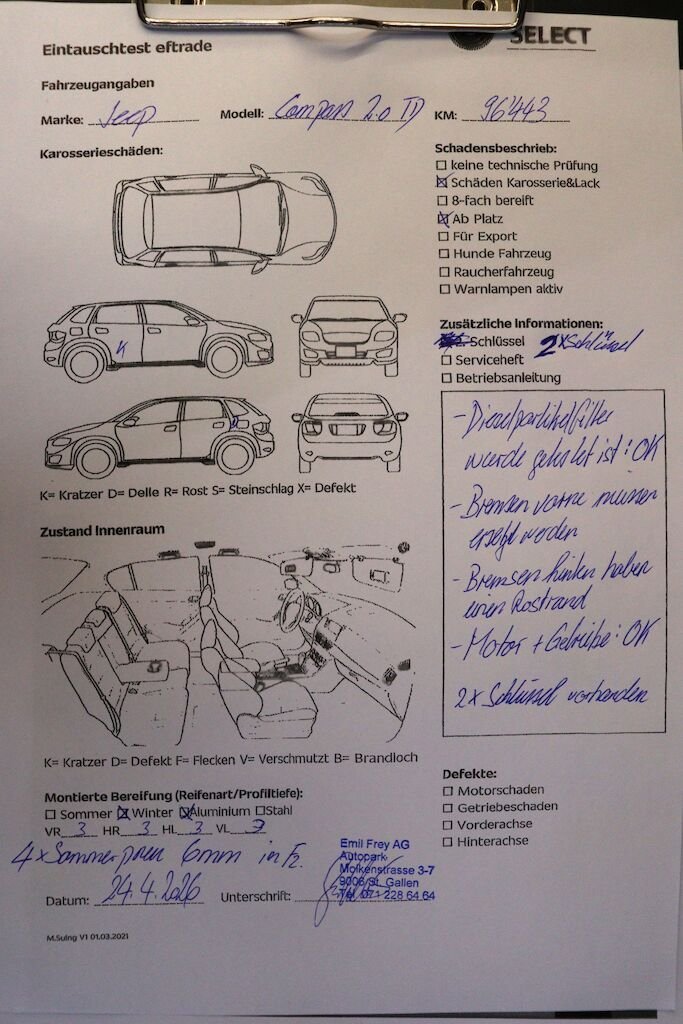 SELECT
Eintauschtest eftrade
Fahrzeugangaben
Marke: Jeep Modell: Compass 2.0 TD KM: 96'443
Karosserieschäden:
K
D
K= Kratzer D= Delle R= Rost S= Steinschlag X= Defekt
Zustand Innenraum
K= Kratzer D= Defekt F= Flecken V= Verschmutzt B= Brandloch
Montierte Bereifung (Reifenart/Profiltiefe):
☐ Sommer ☒ Winter ☒ Aluminium ☐ Stahl
VR 3 HR 3 HL 3 VL 3
4x Sommerpneu 6mm in Fz.
Datum: 24.4.2026 Unterschrift:
Emil Frey AG
Autopark
Molkenstrasse 3-7
9006 St. Gallen
Tel. 071 228 64 64
M.Suing V1 01.03.2021
Schadensbeschrieb:
☐ keine technische Prüfung
☒ Schäden Karosserie&Lack
☐ 8-fach bereift
☒ Ab Platz
☐ Für Export
☐ Hunde Fahrzeug
☐ Raucherfahrzeug
☐ Warnlampen aktiv
Zusätzliche Informationen:
Schlüssel 2xSchlüssel
☐ Serviceheft
☐ Betriebsanleitung
- Dieselpartikelfilter
wurde getestet ist: OK
- Bremsen vorne müssen
ersetzt werden
- Bremsen hinten haben
einen Rostrand
- Motor + Getriebe: OK
2x Schlüssel vorhanden
Defekte:
☐ Motorschaden
☐ Getriebeschaden
☐ Vorderachse
☐ Hinterachse